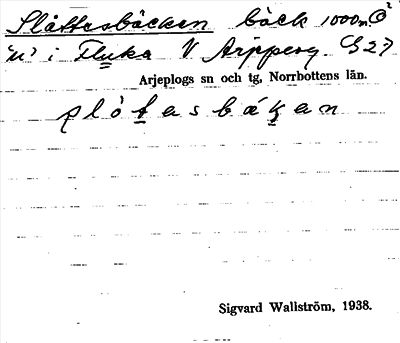 Slåttesbäcken bäck 1000m
"u" i Fluka V Arjeplog. G 27
Arjeplogs sn och tg, Norrbottens län.
slåtasbäkan
Sigvard Wallström, 1938.